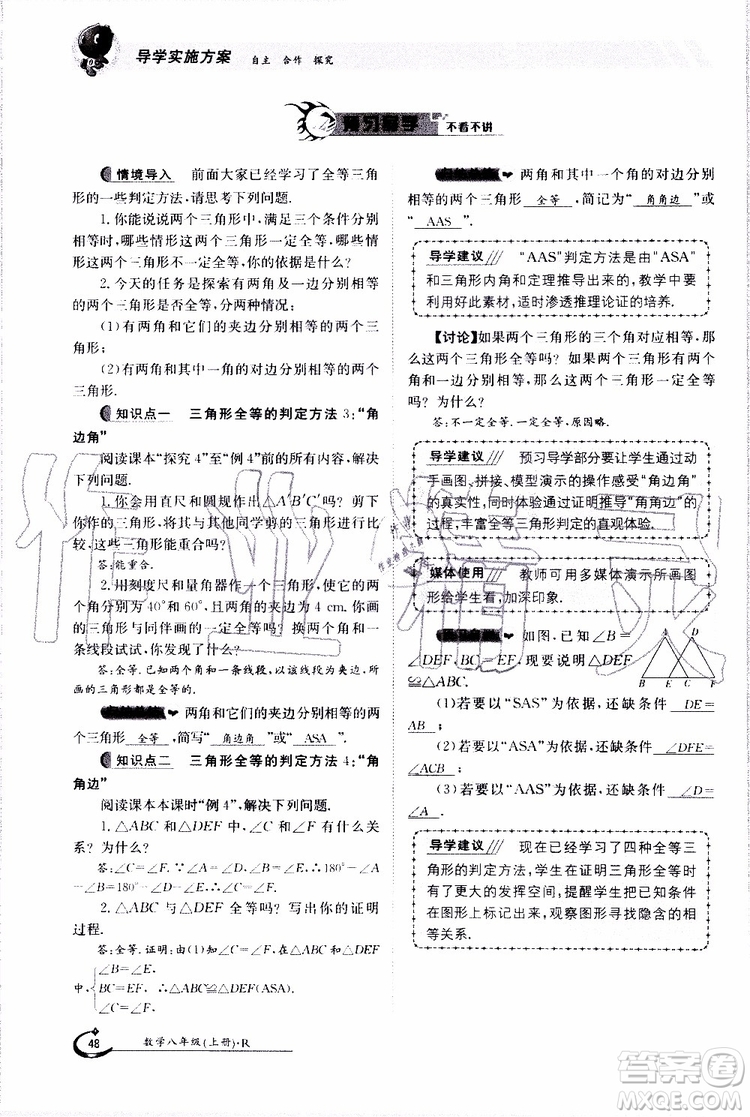 导学实施方案 自主 合作 探究
预习导学 不看不讲
情境导入 前面大家已经学习了全等三角
形的一些判定方法,请思考下列问题.
1.你能说说两个三角形中,满足三个条件分别
相等时,哪些情形这两个三角形一定全等,哪些情
形这两个三角形不一定全等,你的依据是什么?
2.今天的任务是探索有两角及一边分别相等
的两个三角形是否全等,分两种情况:
(1)有两角和它们的夹边分别相等的两个三
角形;
(2)有两角和其中一角的对边分别相等的两个
三角形.
知识点一 三角形全等的判定方法3:“角
边角”
阅读课本“探究4”至“例4”前的所有内容,解决
下列问题.
1.你会用直尺和圆规作出△A′B′C′吗?剪下
你作的三角形,将其与其他同学剪的三角形进行比
较,这些三角形能重合吗?
答:能重合.
2.用刻度尺和量角器作一个三角形,使它的两
个角分别为40°和60°,且两角的夹边为4 cm.你画
的三角形与同伴画的一定全等吗?换两个角和一
条线段试试,你发现了什么?
答:全等.已知两个角和一条线段,以该线段为夹边,所
画的三角形都是全等的.
两角和它们的夹边分别相等的两
个三角形 全等 ,简写“ 角边角 ”或“ ASA ”.
知识点二 三角形全等的判定方法4:“角
角边”
阅读课本本课时“例4”,解决下列问题.
1.△ABC和△DEF中,∠C和∠F有什么关
系?为什么?
答:∠C=∠F.∵∠A=∠D,∠B=∠E,∴180°-∠A
-∠B=180°-∠D-∠E,∴∠C=∠F.
2.△ABC与△DEF全等吗?写出你的证明
过程.
答:全等.证明:由(1)知∠C=∠F,在△ABC和△DEF
中,{∠B=∠E,
BC=EF, ∴△ABC≌△DEF(ASA).
∠C=∠F.
48 数学八年级(上册)·R
两角和其中一个角的对边分别
相等的两个三角形 全等 ,简记为“ 角角边 ”或
“ AAS ”.
导学建议 “AAS”判定方法是由“ASA”
和三角形内角和定理推导出来的,教学中要
利用好此素材,适时渗透推理论证的培养.
【讨论】如果两个三角形的三个角对应相等,
那么这两个三角形全等吗?如果两个三角形有两
个角和任意一边对应相等,那么这两个三角形全等
吗?为什么?
答:不一定全等.一定全等,原因略.
导学建议 预习导学部分要让学生通过动
手画图、拼接、模型演示的操作感受“角边角”
的真实性,同时体验通过证明推导“角角边”的
过程,丰富全等三角形判定的直观体验.
媒体使用 教师可用多媒体演示所画图
形给学生看,加深印象.
预习自测 如图,已知∠B=
∠DEF,BC=EF,现要说明△DEF
≌△ABC.
A D
B E C F
(1)若要以“SAS”为依据,还缺条件 DE=
AB ;
(2)若要以“ASA”为依据,还缺条件 ∠DFE=
∠ACB ;
(3)若要以“AAS”为依据,还缺条件 ∠D=
∠A .
导学建议 现在已经学习了四种全等三
角形的判定方法,学生在证明三角形全等时
有了更大的发挥空间,提醒学生把已知条件
在图形上标记出来,观察图形寻找隐含的相
等关系.